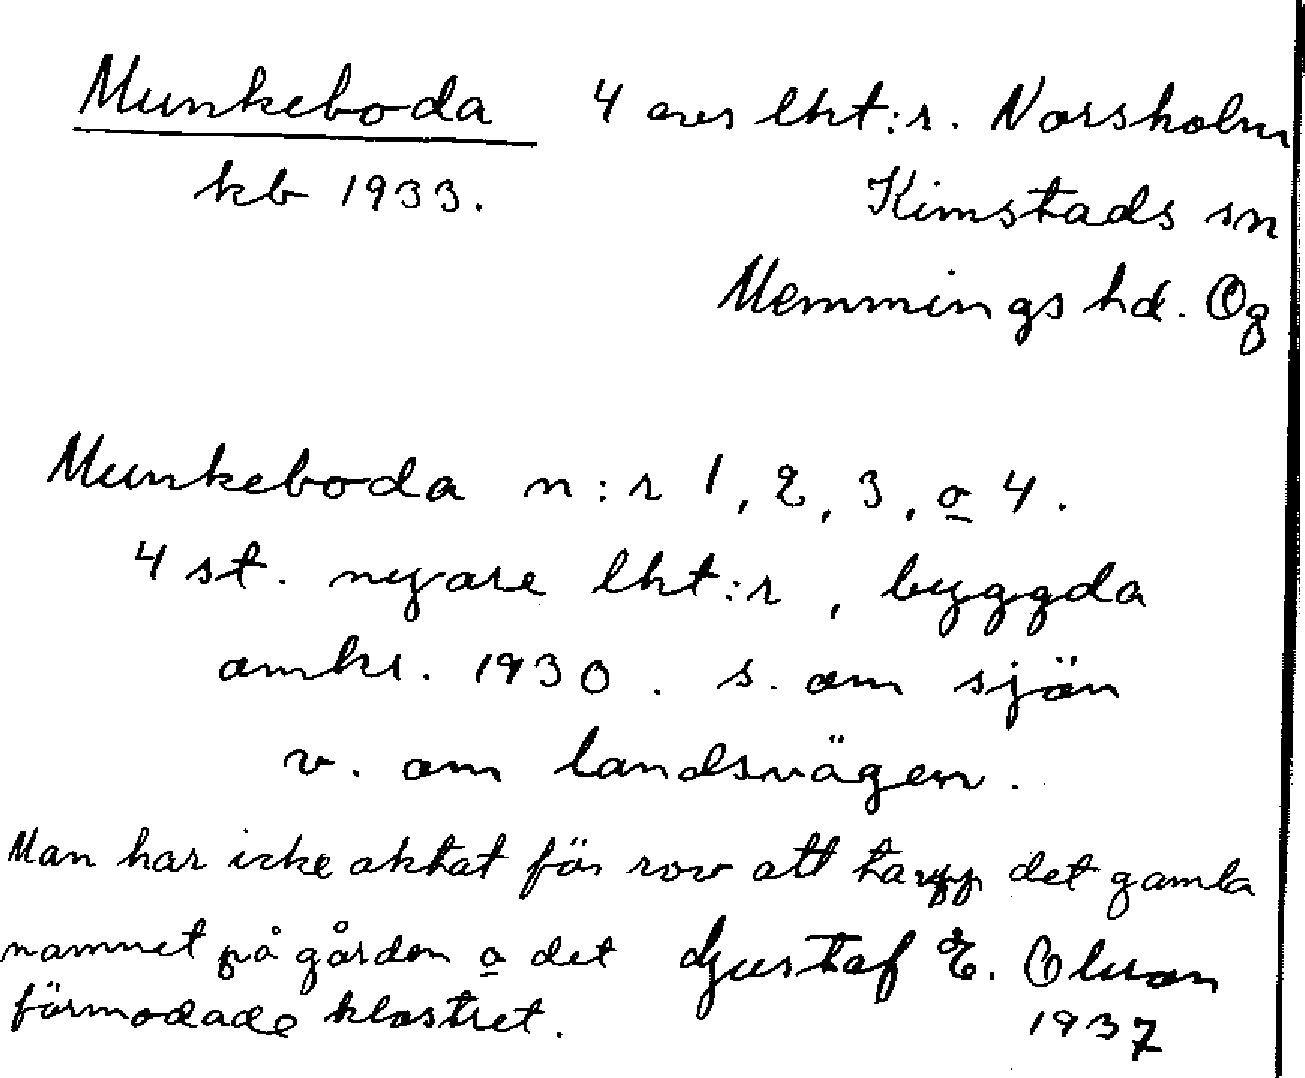 Munkeboda 4 avs lht:r. Norsholm
kb 1933. Kimstads sn
Memmings hd. Ög
Munkeboda n:r 1, 2, 3, o 4.
4 st. nyare lht:r, byggda
omkr. 1930. s. om sjön
v. om landsvägen.
Man har icke aktat för rov att ta upp det gamla
namnet på gården o det Gustaf E. Olsson
förmodade klostret. 1937